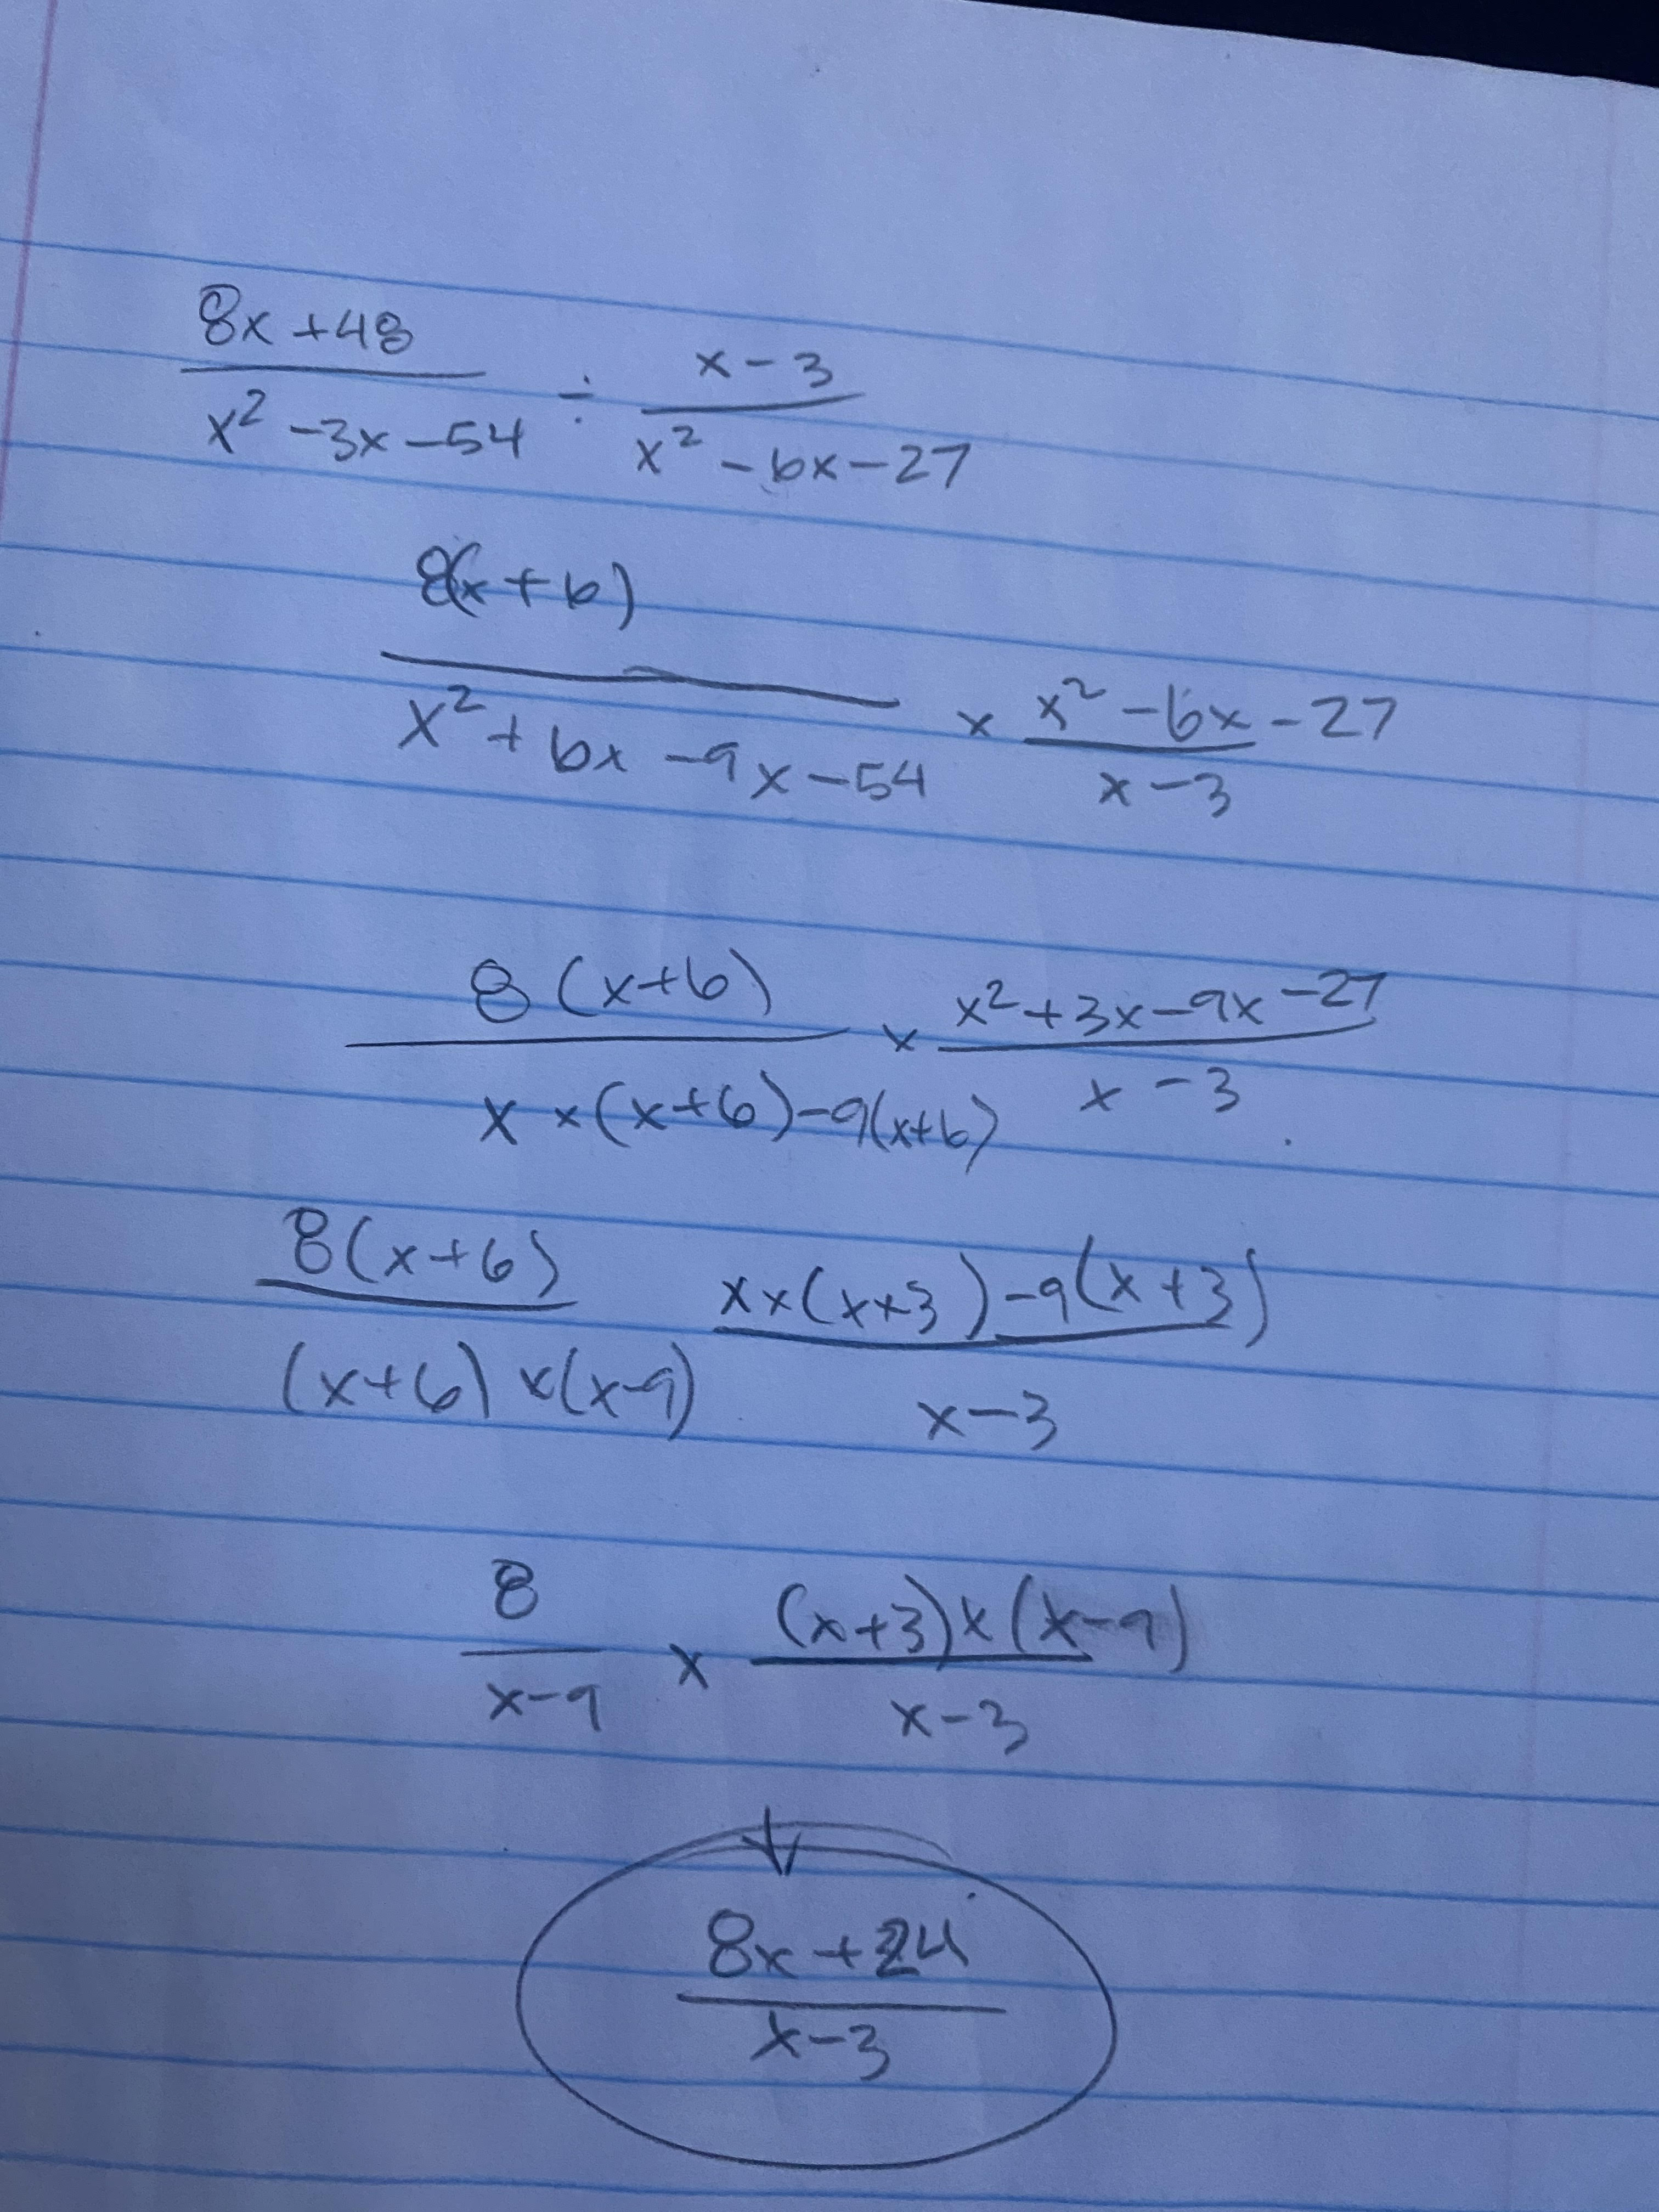 8x+48 / x² -3x-54 ÷ x-3 / x² -6x-27
8(x+6) / x²+6x-9x-54 × x²-6x-27 / x-3
8(x+6) / x×(x+6)-9(x+6) × x²+3x-9x-27 / x-3
8(x+6) / (x+6)×(x-9) x×(x+3)-9(x+3) / x-3
8 / x-9 × (x+3)×(x-9) / x-3
8x+24 / x-3